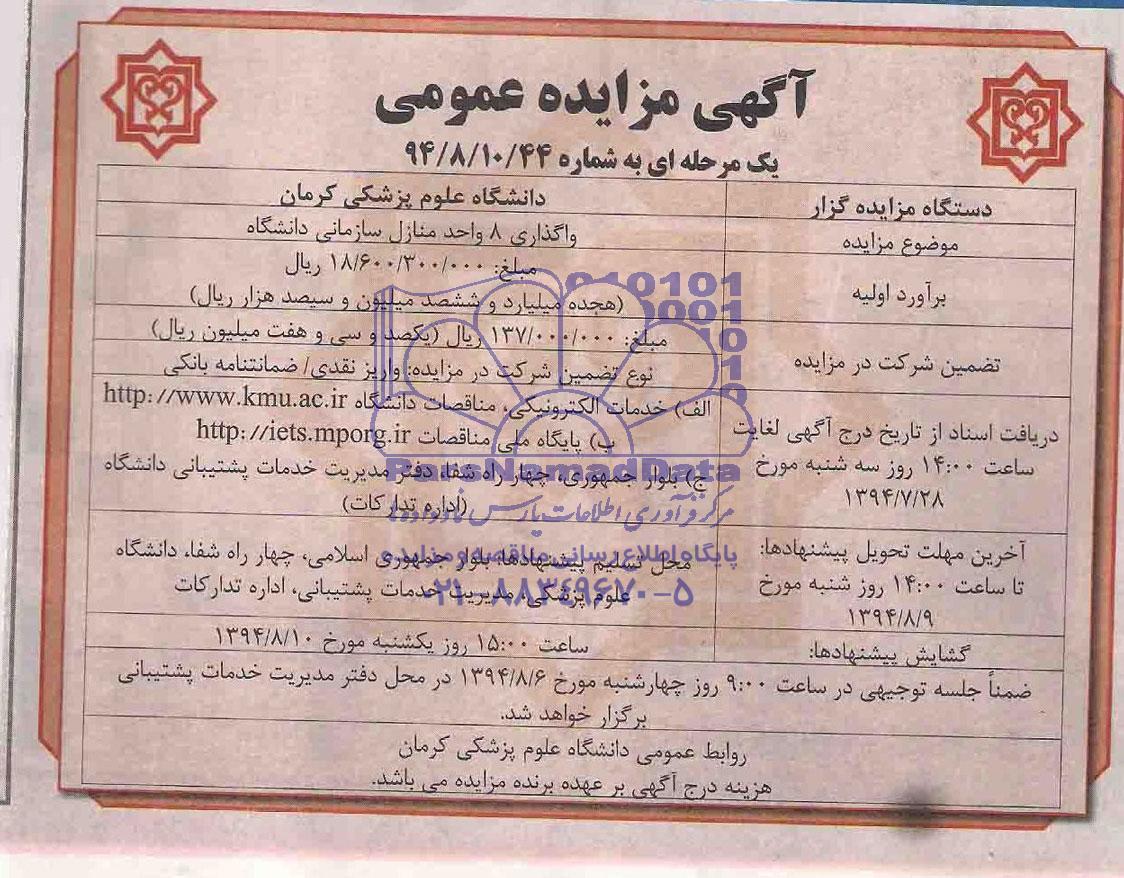 آگهی مزایده عمومی
یک مرحله ای به شماره ۹۴/۸/۱۰/۴۴
دستگاه مزایده گزار
دانشگاه علوم پزشکی کرمان
موضوع مزایده
واگذاری ۸ واحد منازل سازمانی دانشگاه
برآورد اولیه
مبلغ: ۱۸/۶۰۰/۳۰۰/۰۰۰ ریال
(هجده میلیارد و ششصد میلیون و سیصد هزار ریال)
تضمین شرکت در مزایده
مبلغ: ۱۳۷/۰۰۰/۰۰۰ ریال (یکصد و سی و هفت میلیون ریال)
نوع تضمین شرکت در مزایده: واریز نقدی/ ضمانتنامه بانکی
دریافت اسناد از تاریخ درج آگهی لغایت
ساعت ۱۴:۰۰ روز سه شنبه مورخ
۱۳۹۴/۷/۲۸
الف) خدمات الکترونیکی، مناقصات دانشگاه http://www.kmu.ac.ir
ب) پایگاه ملی مناقصات http://iets.mporg.ir
ج) بلوار جمهوری، چهار راه شفا، دفتر مدیریت خدمات پشتیبانی دانشگاه
(اداره تدارکات)
آخرین مهلت تحویل پیشنهادها:
تا ساعت ۱۴:۰۰ روز شنبه مورخ
۱۳۹۴/۸/۹
محل تسلیم پیشنهادها: بلوار جمهوری اسلامی، چهار راه شفا، دانشگاه
علوم پزشکی، مدیریت خدمات پشتیبانی، اداره تدارکات
گشایش پیشنهادها:
ساعت ۱۵:۰۰ روز یکشنبه مورخ ۱۳۹۴/۸/۱۰
ضمناً جلسه توجیهی در ساعت ۹:۰۰ روز چهارشنبه مورخ ۱۳۹۴/۸/۶ در محل دفتر مدیریت خدمات پشتیبانی
برگزار خواهد شد.
روابط عمومی دانشگاه علوم پزشکی کرمان
هزینه درج آگهی بر عهده برنده مزایده می باشد.
ParsNamadData
پایگاه اطلاع رسانی مناقصه و مزایده
۰۲۱-۸۸۳۴۹۶۷۰-۵